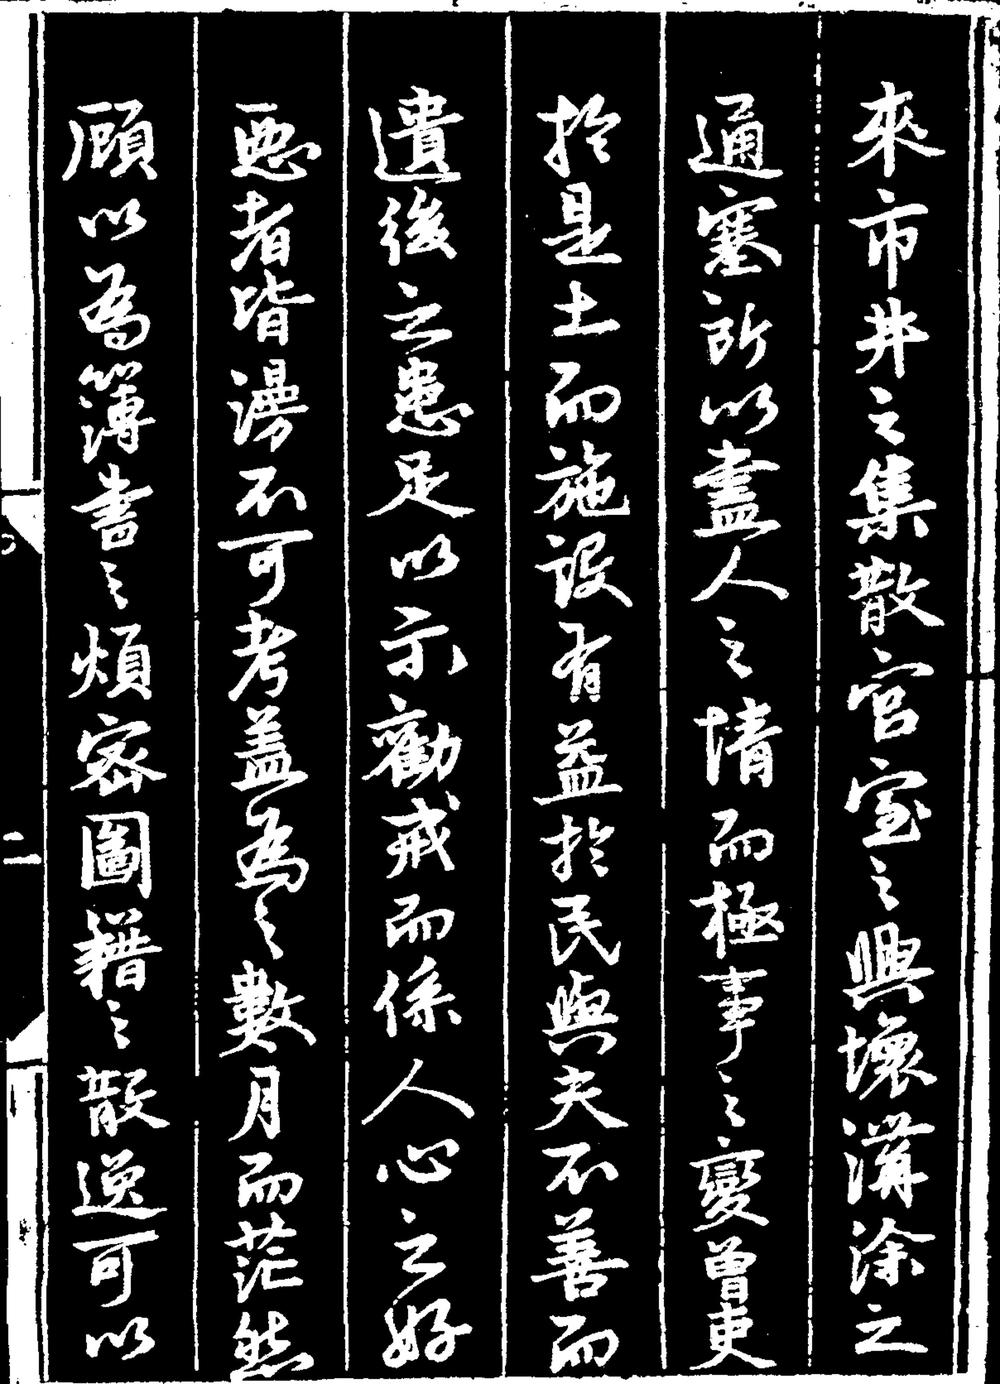 來市井之集散官室之興壞溝涂之
通塞所以盡人之情而極事之變曾吏
於是土而施設有益於民與夫不善而
遺後之患足以示勸戒而係人心之好
惡者皆漫不可考蓋為之數月而茫然
顧以為簿書之煩密圖籍之散逸可以
二